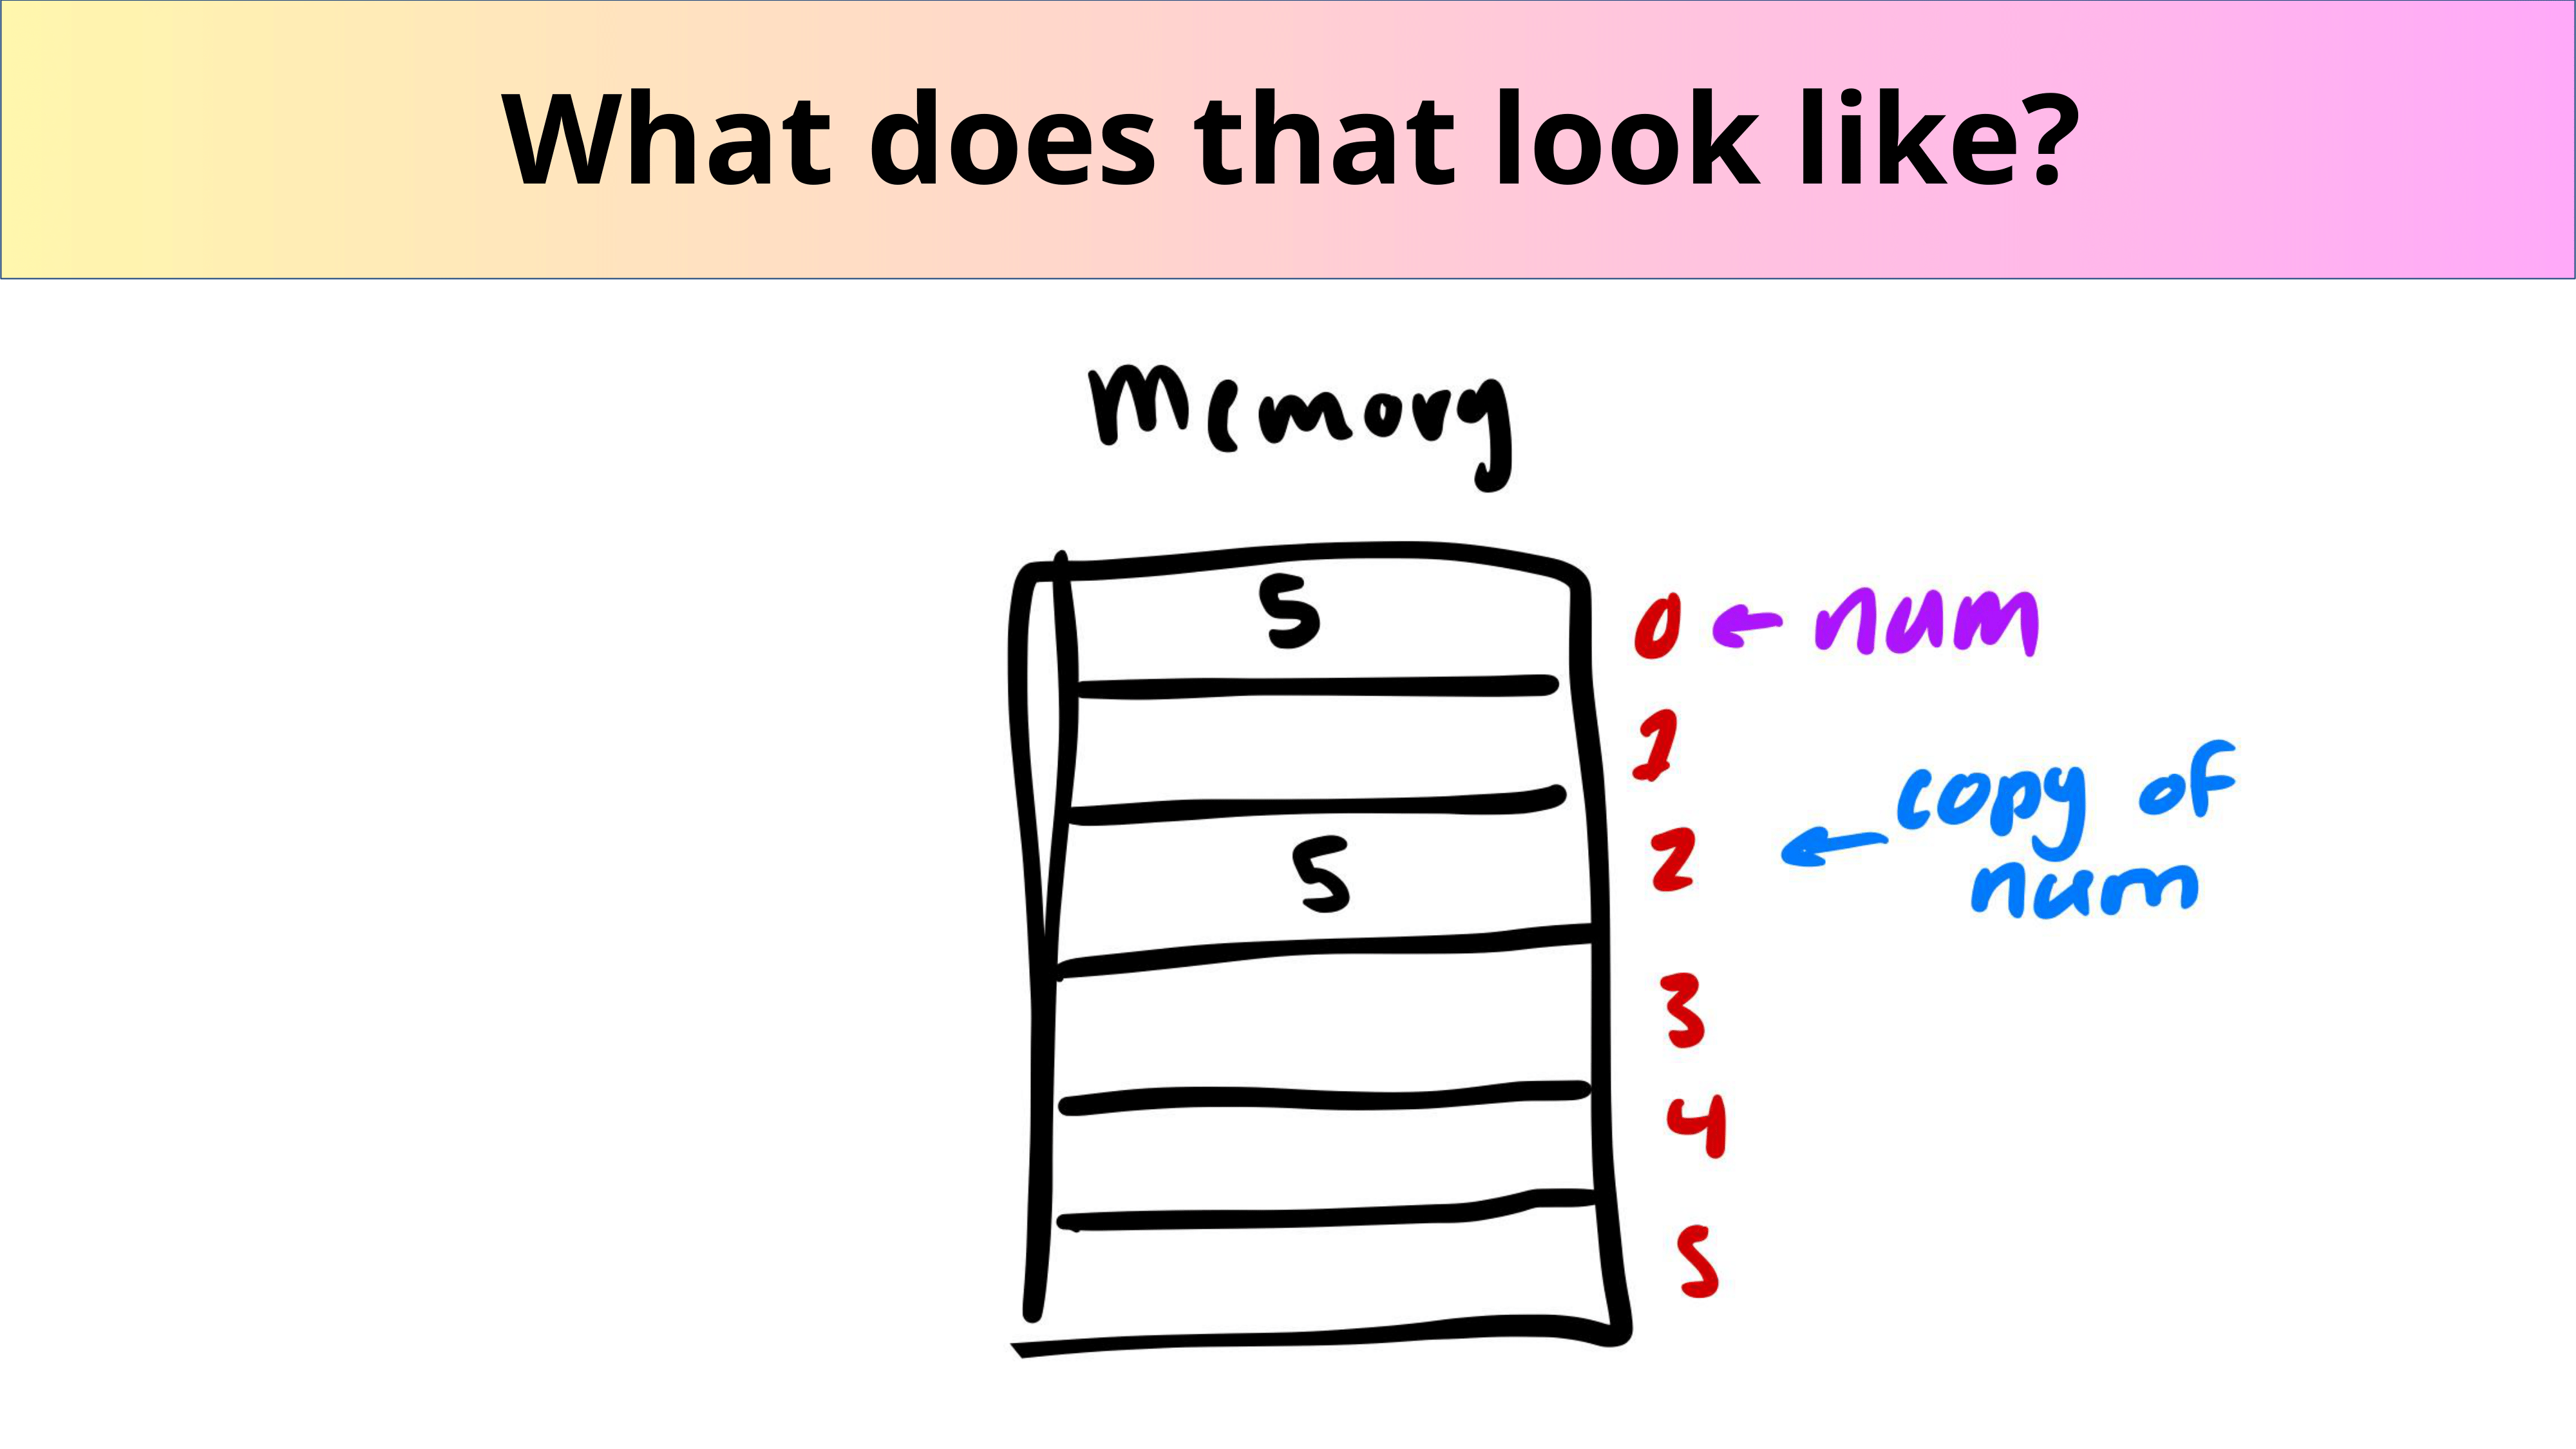 What does that look like?
Memory
5 0 ← num
1
5 2 ← copy of
num
3
4
5